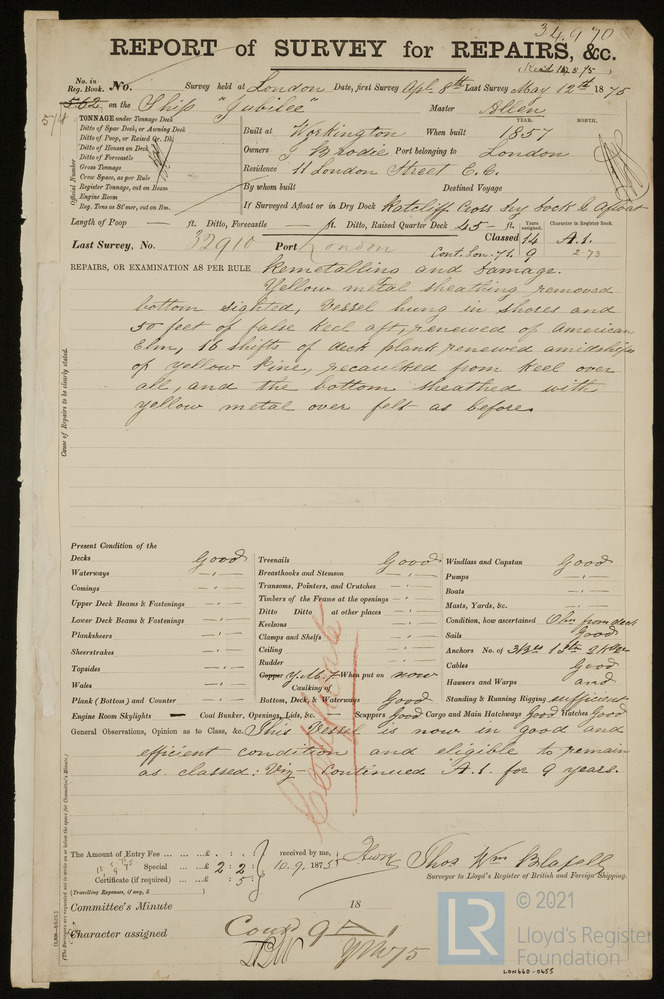 34970
REPORT of SURVEY for REPAIRS, &c.
No. in Reg. Book. No. Survey held at London Date, first Survey Apl. 8th Last Survey May 12th 1875
562 on the Ship "Jubilee" Master Allen
574
TONNAGE under Tonnage Deck
Ditto of Spar Deck, or Awning Deck
Ditto of Poop, or Raised Qr. Dk.
Ditto of Houses on Deck
Ditto of Forecastle
Gross Tonnage
Crew Space, as per Rule
Register Tonnage, cut on Beam
Engine Room
Reg. Tons as St'mer, cut on Bm.
Official Number
YEAR. MONTH.
Built at Workington When built 1857
Owners J Brodie Port belonging to London
Residence 11 London Street E.C.
By whom built Destined Voyage
If Surveyed Afloat or in Dry Dock Ratcliff Cross Dry Dock & Afloat
Length of Poop — ft. Ditto, Forecastle — ft. Ditto, Raised Quarter Deck 45 - ft.
Years assigned. Character in Register Book.
Last Survey, No. 32910 Port London Classed 14 A.1.
Cont. Lon. 71. 9 2.73
REPAIRS, OR EXAMINATION AS PER RULE Remetalling and damage.
Yellow metal sheathing removed
bottom sighted, Vessel hung in shores and
50 feet of false keel aft, renewed of American
Elm, 16 shifts of deck plank renewed amidships
of yellow Pine, recaulked from keel over
all, and the bottom sheathed with
yellow metal over felt as before.
Cause of Repairs to be clearly stated.
Present Condition of the
Decks Good
Waterways
Comings
Upper Deck Beams & Fastenings
Lower Deck Beams & Fastenings
Planksheers
Sheerstrakes
Topsides
Wales
Plank (Bottom) and Counter
Engine Room Skylights — Coal Bunker, Openings, Lids, &c. — Scuppers Good Cargo and Main Hatchways Good Hatches Good
Treenails Good
Breasthooks and Stemson
Transoms, Pointers, and Crutches
Timbers of the Frame at the openings
Ditto Ditto at other places
Keelsons
Clamps and Shelfs
Ceiling
Rudder
Copper Y.M. When put on now
Caulking of
Bottom, Deck, & Waterways Good
Windlass and Capstan Good
Pumps
Boats
Masts, Yards, &c.
Condition, how ascertained Obn from deck
Sails Good
Anchors No. of
Cables Good
Hawsers and Warps and
Standing & Running Rigging sufficient
General Observations, Opinion as to Class, &c. This Vessel is now in good and
efficient condition and eligible to remain
as classed: Viz - Continued A.1. for 9 years.
Certificate
The Amount of Entry Fee ... £ : :
Special ... £ 2 : 2 :
Certificate (if required) ... £ : 5 :
(Travelling Expenses, if any, £ )
received by me,
10.9.1875
Thos Wm Blafell
Surveyor to Lloyd's Register of British and Foreign Shipping.
Committee's Minute 18
Character assigned Cont 9 A 1
© 2021
LR
Lloyd's Register
Foundation
LON660-0655